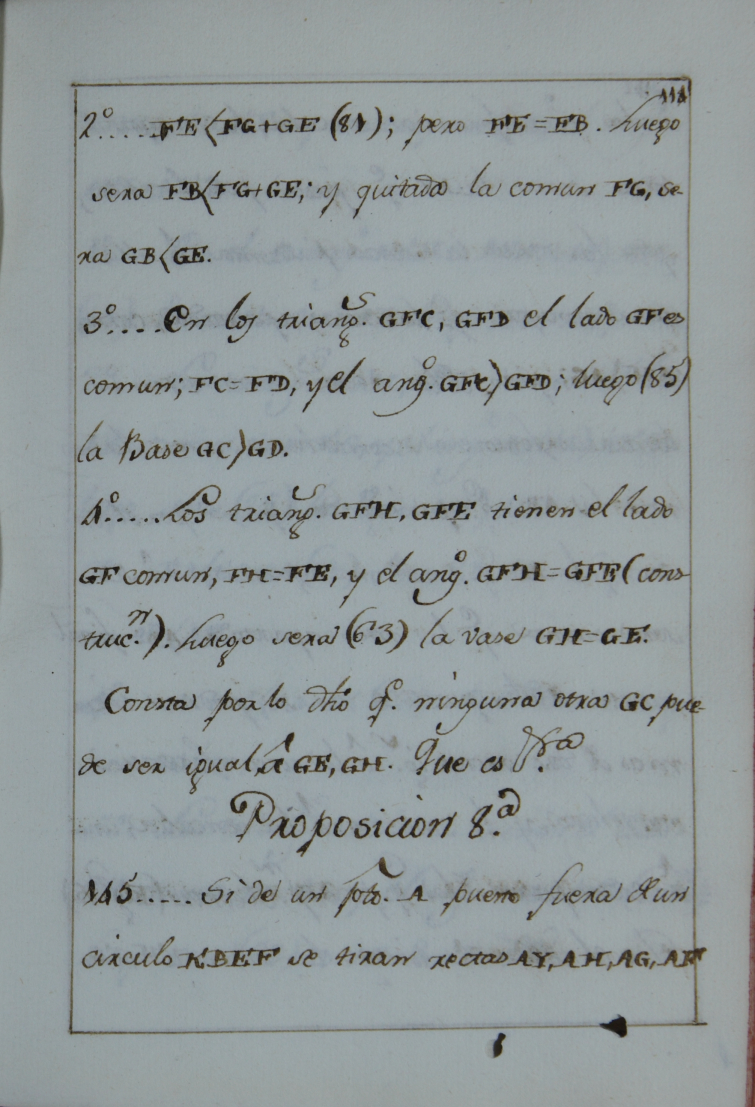 111
2º.....FE<FG+GE (81); pero FE=FB. Luego
sera FB<FG+GE; y quitida la comun FG, se-
ra GB<GE.
3º....En los triangˢ. GFC, GFD el lado GF es
comun; FC=FD, y el angº. GFC>GFD; luego (85)
la Base GC>GD.
4º.....Los triangˢ. GFH, GFE tienen el lado
GF comun, FH=FE, y el angº. GFH=GFE (cons-
trucⁿ.). Luego sera (63) la vase GH=GE.
Consta por lo dho q̃. ninguna otra GC pue-
de ser igual á GE, GH. Que es &ᵃ.
Proposicion 8.ª
145.....Si de un pto. A puesto fuera de un
circulo KBEF se tiran rectas AY, AH, AG, AF